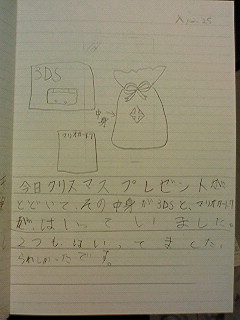 25
3DS
中身
マリオカート7
今日クリスマスプレゼントが
とどいて、その中身が3DSと、マリオカート7
が、はいっていました。
2つもはいってました。
うれしかったです。